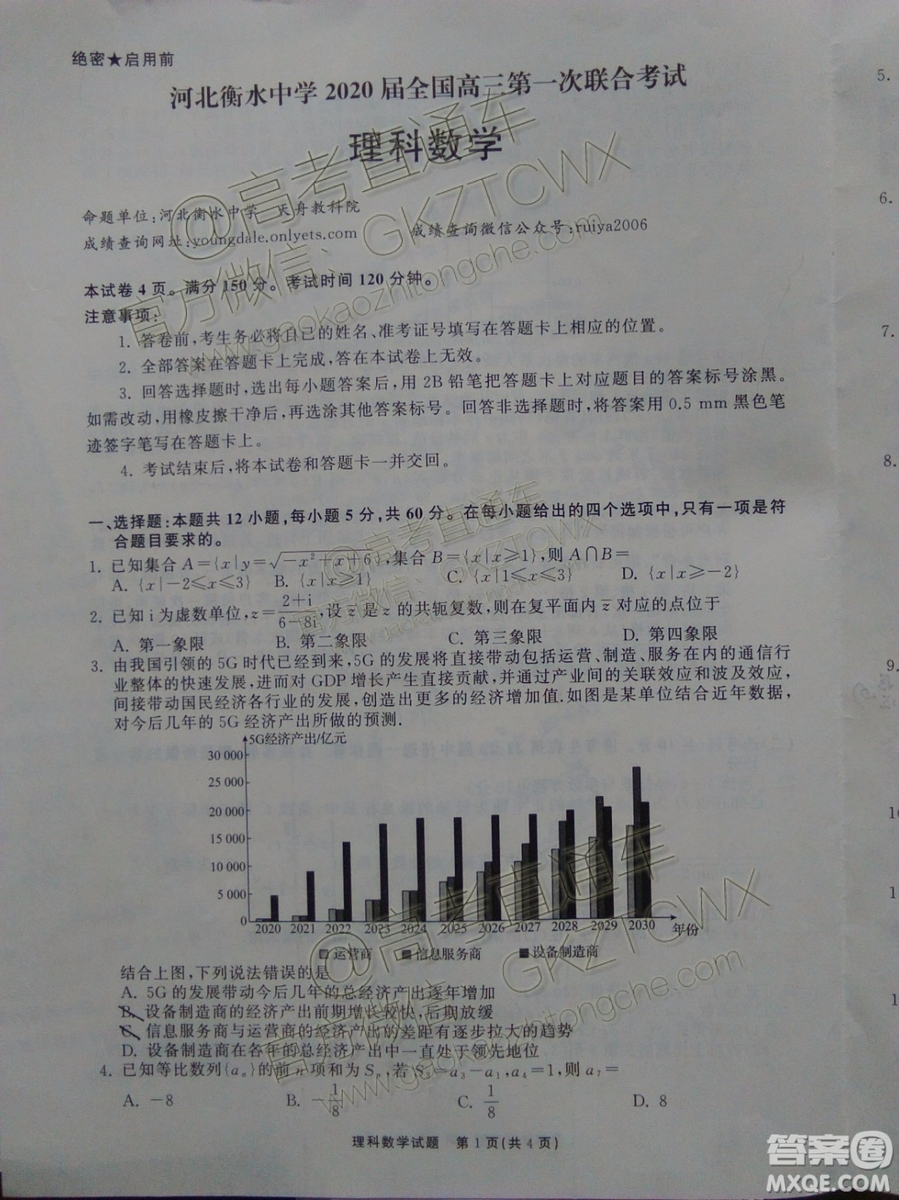 绝密★启用前
河北衡水中学 2020 届全国高三第一次联合考试
理科数学
命题单位:河北衡水中学 天舟教科院
成绩查询网址:youngdale.onlyets.com 成绩查询微信公众号:ruiya2006
本试卷 4 页。满分 150 分。考试时间 120 分钟。
注意事项:
1. 答卷前,考生务必将自己的姓名、准考证号填写在答题卡上相应的位置。
2. 全部答案在答题卡上完成,答在本试卷上无效。
3. 回答选择题时,选出每小题答案后,用 2B 铅笔把答题卡上对应题目的答案标号涂黑。
如需改动,用橡皮擦干净后,再选涂其他答案标号。回答非选择题时,将答案用 0.5 mm 黑色笔
迹签字笔写在答题卡上。
4. 考试结束后,将本试卷和答题卡一并交回。
一、选择题:本题共 12 小题,每小题 5 分,共 60 分。在每小题给出的四个选项中,只有一项是符
合题目要求的。
1. 已知集合 A={x|y=√(-x²+x+6)},集合 B={x|x≥1},则 A∩B=
A. {x|-2≤x≤3} B. {x|x≥1} C. {x|1≤x≤3} D. {x|x≥-2}
2. 已知 i 为虚数单位,z=(2+i)/(6-8i),设 z̄ 是 z 的共轭复数,则在复平面内 z̄ 对应的点位于
A. 第一象限 B. 第二象限 C. 第三象限 D. 第四象限
3. 由我国引领的 5G 时代已经到来,5G 的发展将直接带动包括运营、制造、服务在内的通信行
业整体的快速发展,进而对 GDP 增长产生直接贡献,并通过产业间的关联效应和波及效应,
间接带动国民经济各行业的发展,创造出更多的经济增加值.如图是某单位结合近年数据,
对今后几年的 5G 经济产出所做的预测.
5G经济产出/亿元
30 000
25 000
20 000
15 000
10 000
5 000
0
2020 2021 2022 2023 2024 2025 2026 2027 2028 2029 2030 年份
运营商 信息服务商 设备制造商
结合上图,下列说法错误的是
A. 5G 的发展带动今后几年的总经济产出逐年增加
B. 设备制造商的经济产出前期增长较快,后期放缓
C. 信息服务商与运营商的经济产出的差距有逐步拉大的趋势
D. 设备制造商在各年的总经济产出中一直处于领先地位
4. 已知等比数列{aₙ}的前 n 项和为 Sₙ,若 S₂=a₃-a₁,a₄=1,则 a₇=
A. -8 B. -1/8 C. 1/8 D. 8
理科数学试题 第 1 页(共 4 页)
5.
6.
7.
8.
9.
@高考直通车
官方微信:GKZTCWX
www.gaokaozhitongche.com
@高考直通车
官方微信:GKZTCWX
www.gaokaozhitongche.com
@高考直通车
官方微信:GKZTCWX
www.gaokaozhitongche.com
答案圈
MXQE.COM